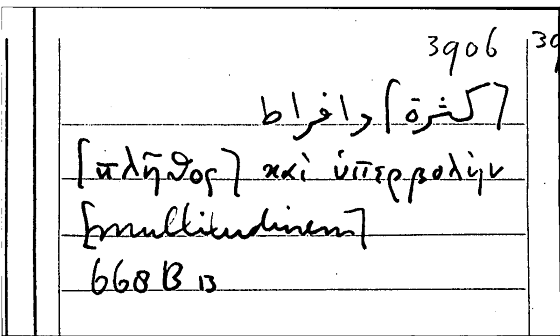 3906
[كثرة] وافراط
[πλῆθος] καὶ ὑπερβολὴν
[multitudinem]
668 B 13